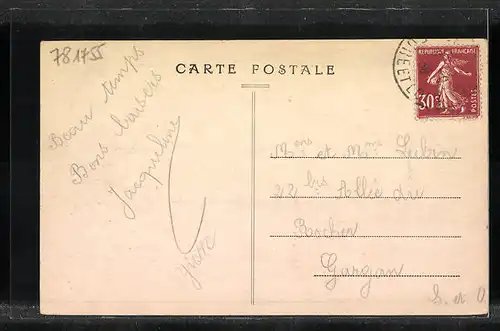 781755
CARTE POSTALE
REPUBLIQUE FRANÇAISE
30c
POSTES
Beau temps
Bons baisers
Jacqueline
Pierre
Mons et Mme
22 bis Allée du
Rocher
Gargan
S. et O